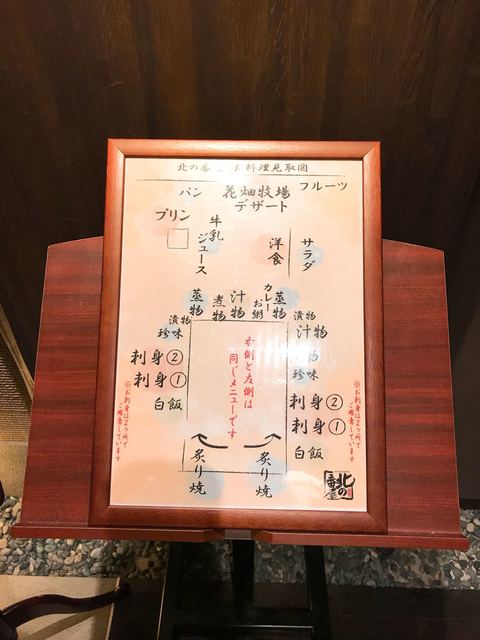 北の番 お料理見取図
パン
花畑牧場
デザート
フルーツ
プリン
牛乳
ジュース
洋食
サラダ
蒸物
煮物
汁物
お粥
カレー
蒸物
漬物
珍味
刺身②
刺身①
白飯
漬物
汁物
物
珍味
刺身②
刺身①
白飯
右側と左側は
同じメニューです
※お刺身は2ヶ所で
ご用意しています
※お刺身は2ヶ所で
ご用意しています
炙り焼
炙り焼
北の番屋